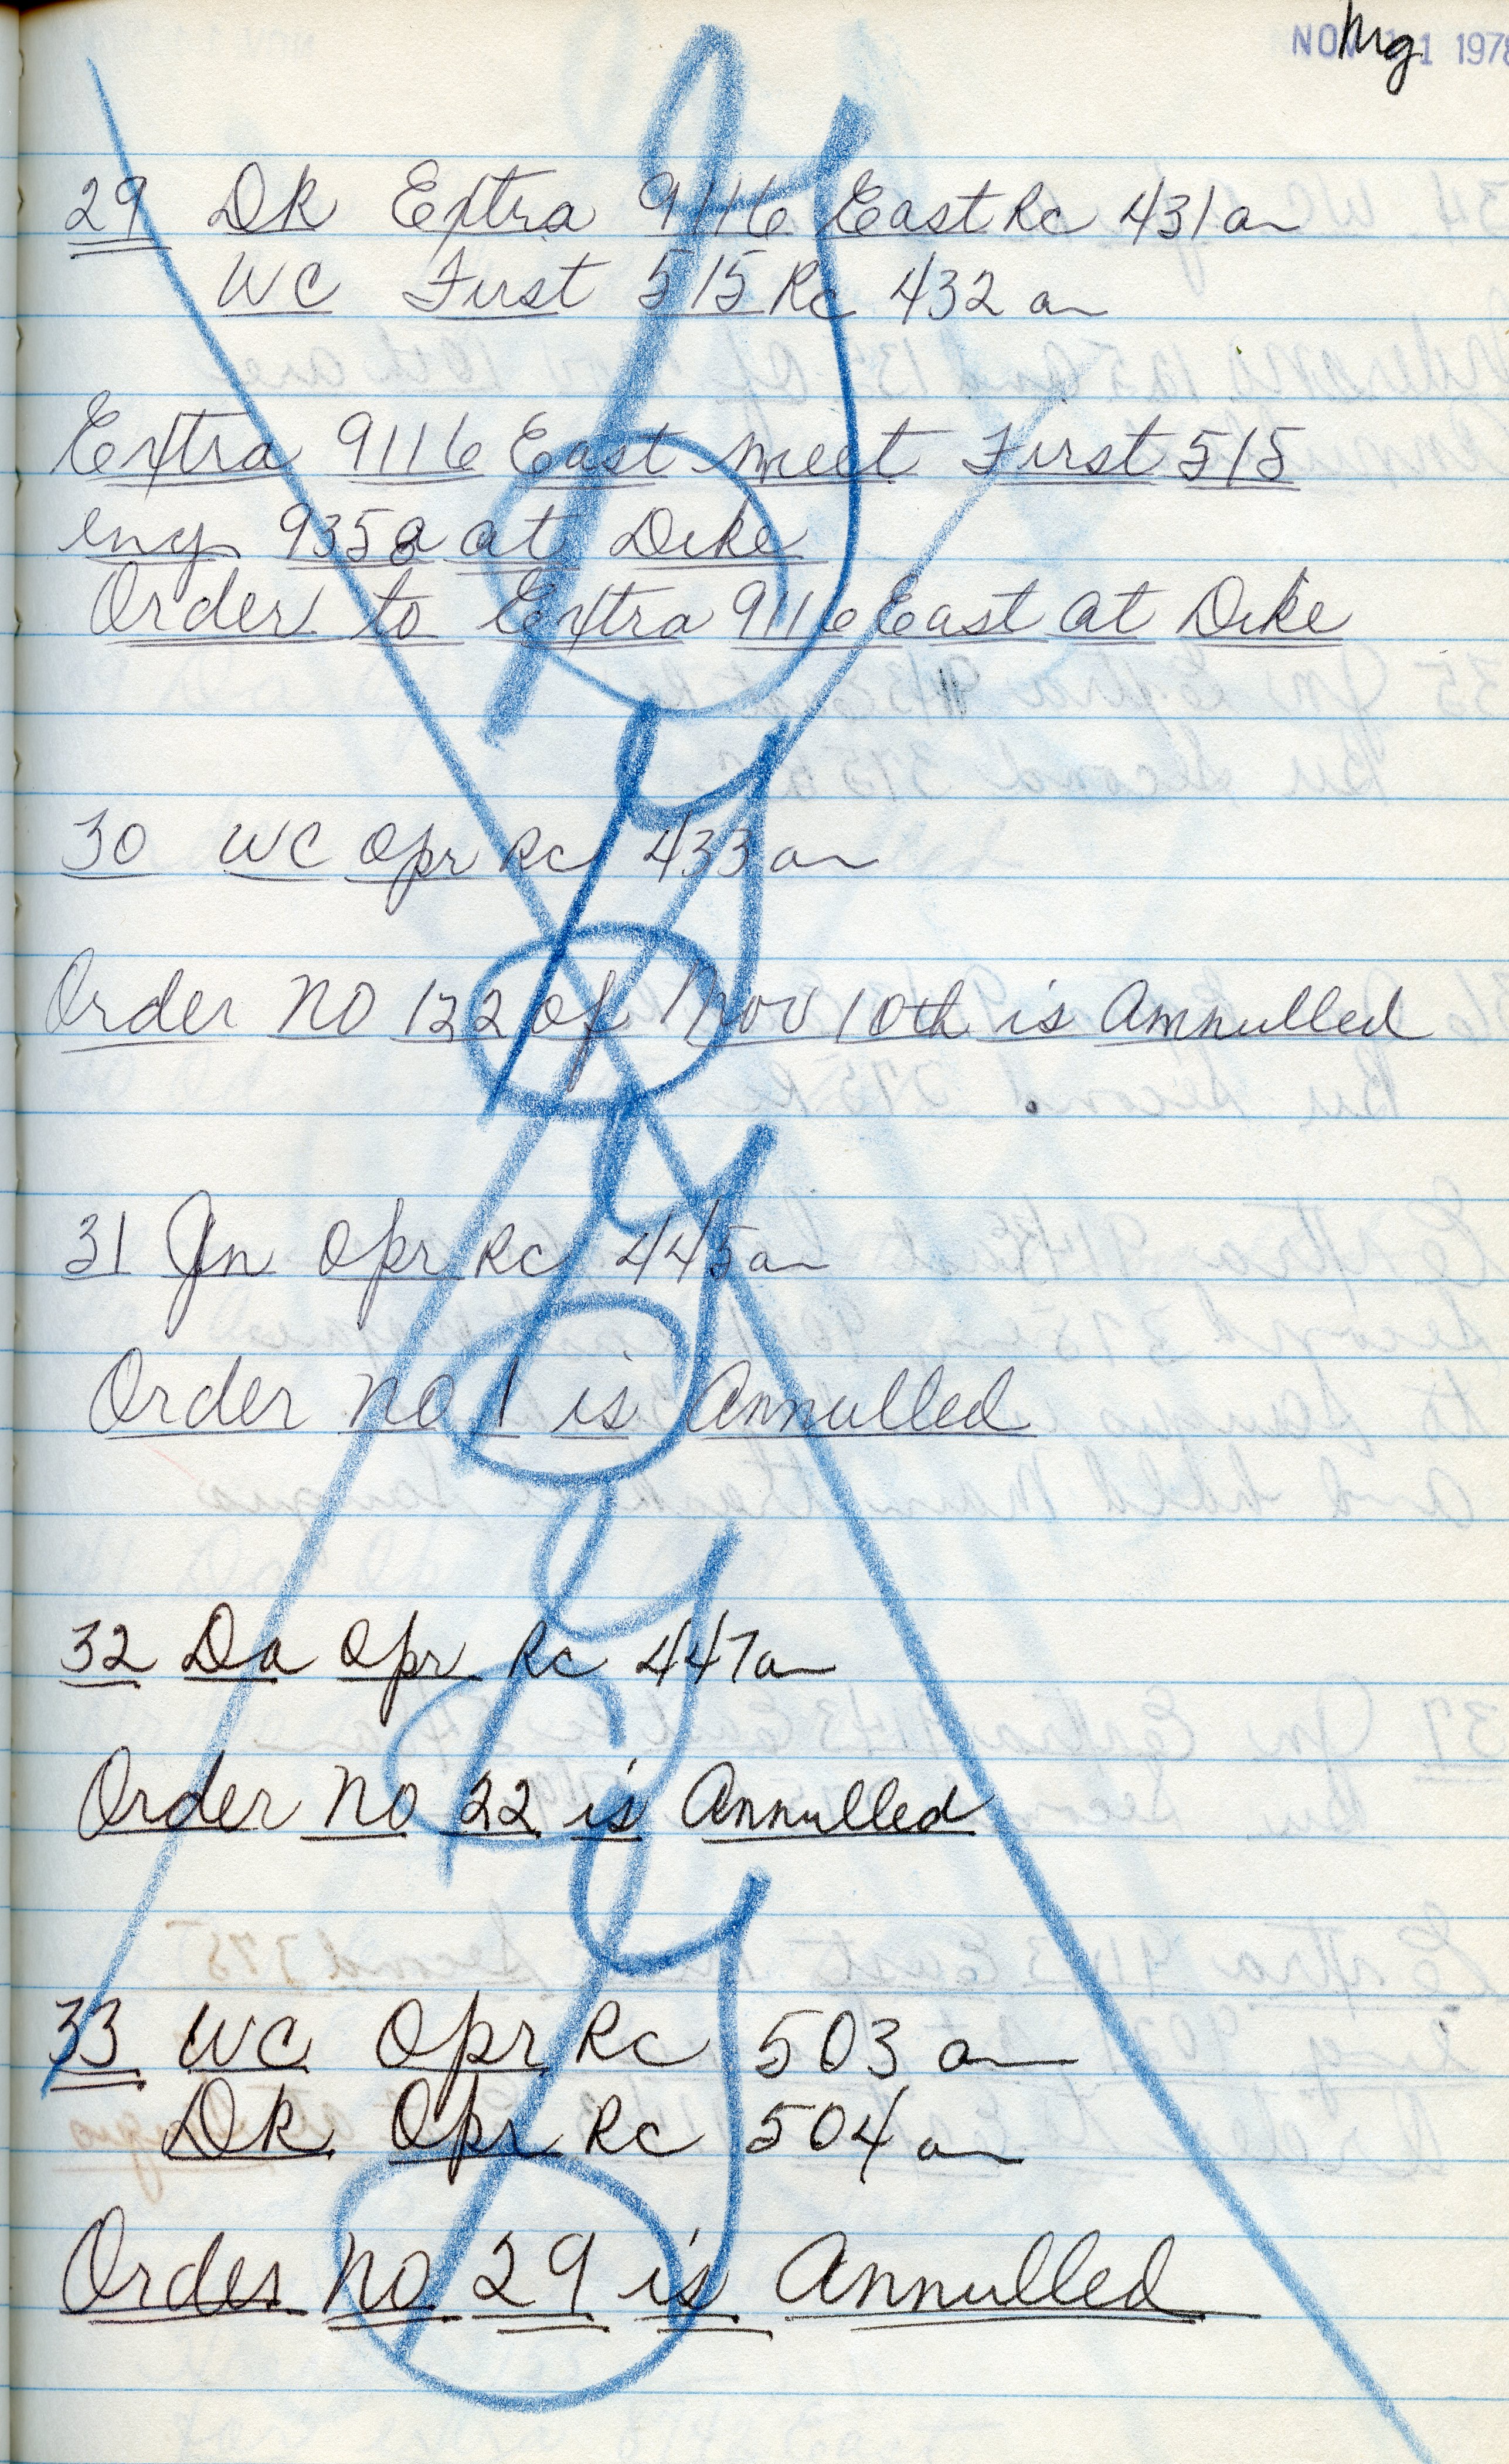 NOV 11 1978
mg
29 DK Extra 9116 East Rc 431 am
WC First 515 Rc 432 am
Extra 9116 East meet First 515
eng 9358 at Dike
Order to Extra 9116 East at Dike
30 WC Opr Rc 433 am
Order No 122 of Nov 10th is Amnulled
31 Jn Opr Rc 445 am
Order No 1 is Annulled
32 Da Opr Rc 447 am
Order No 22 is Annulled
33 WC Opr Rc 503 am
DK Opr Rc 504 am
Order No 29 is Annulled